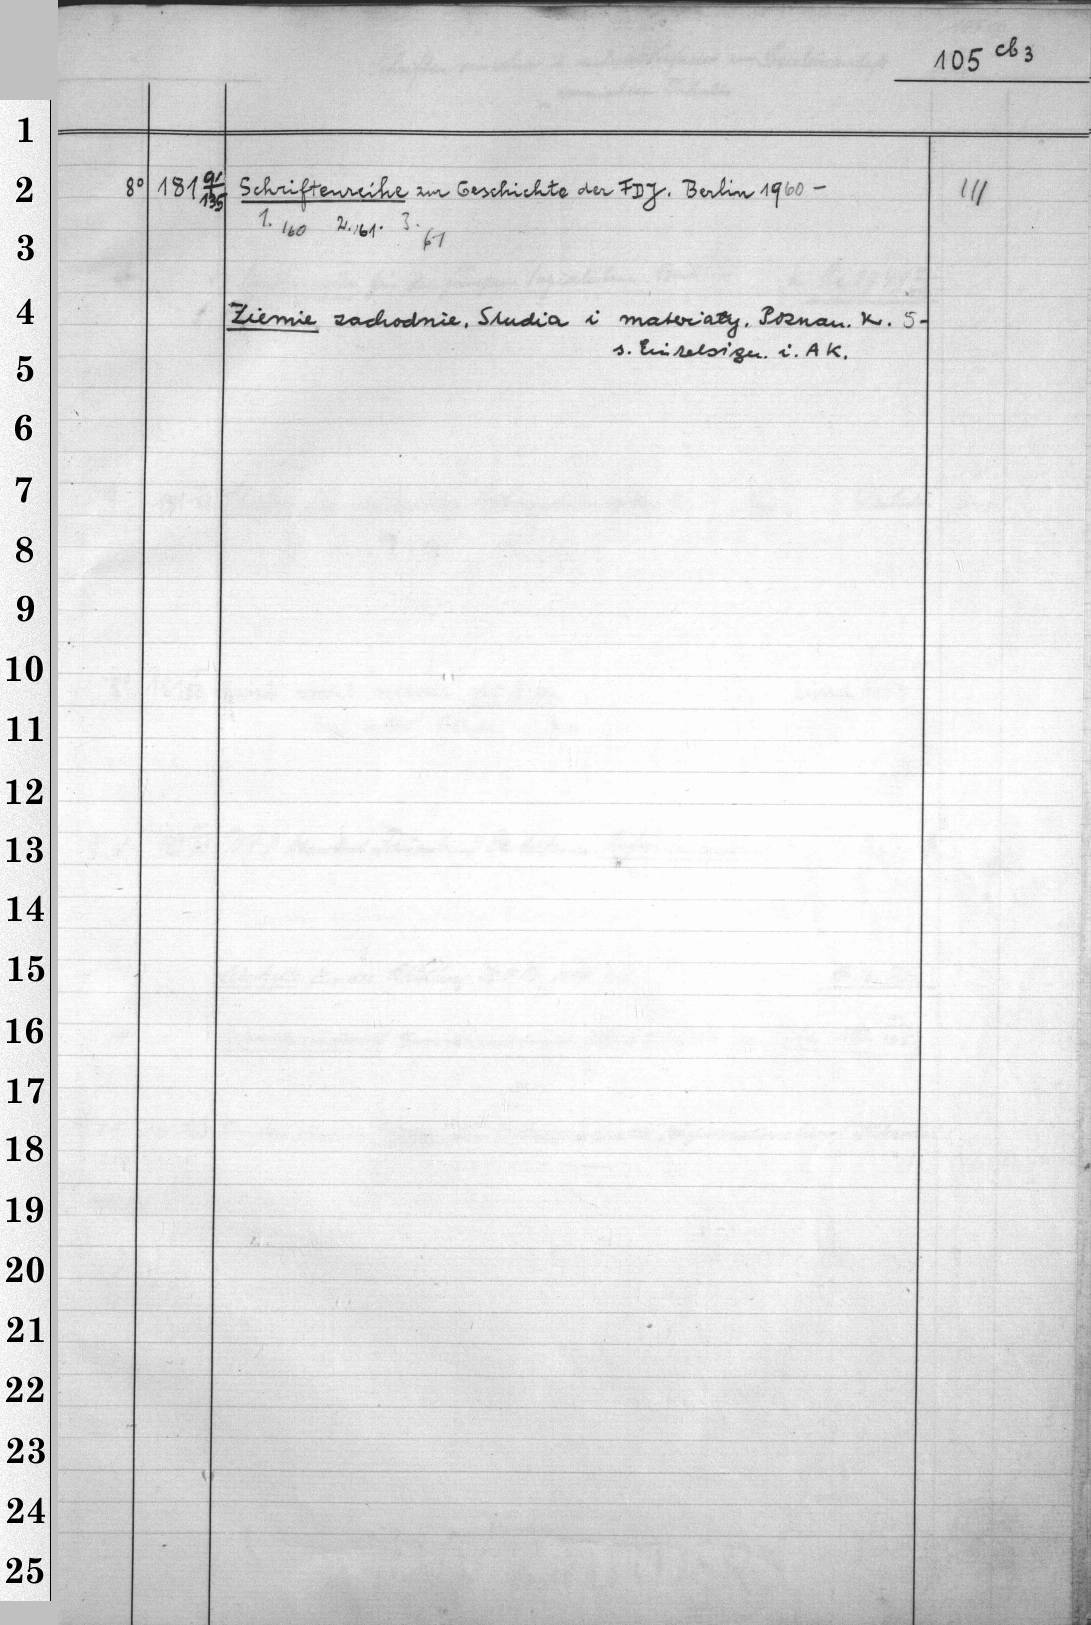 105 cb3
1
2
8° 181 91/135 Schriftenreihe zur Geschichte der FDJ. Berlin 1960 – III
1. 160 2. 161. 3. 61
3
4
Ziemie zachodnie. Studia i materiały. Poznań. K. 5-
s. Einzelsign. i. AK.
5
6
7
8
9
10
11
12
13
14
15
16
17
18
19
20
21
22
23
24
25